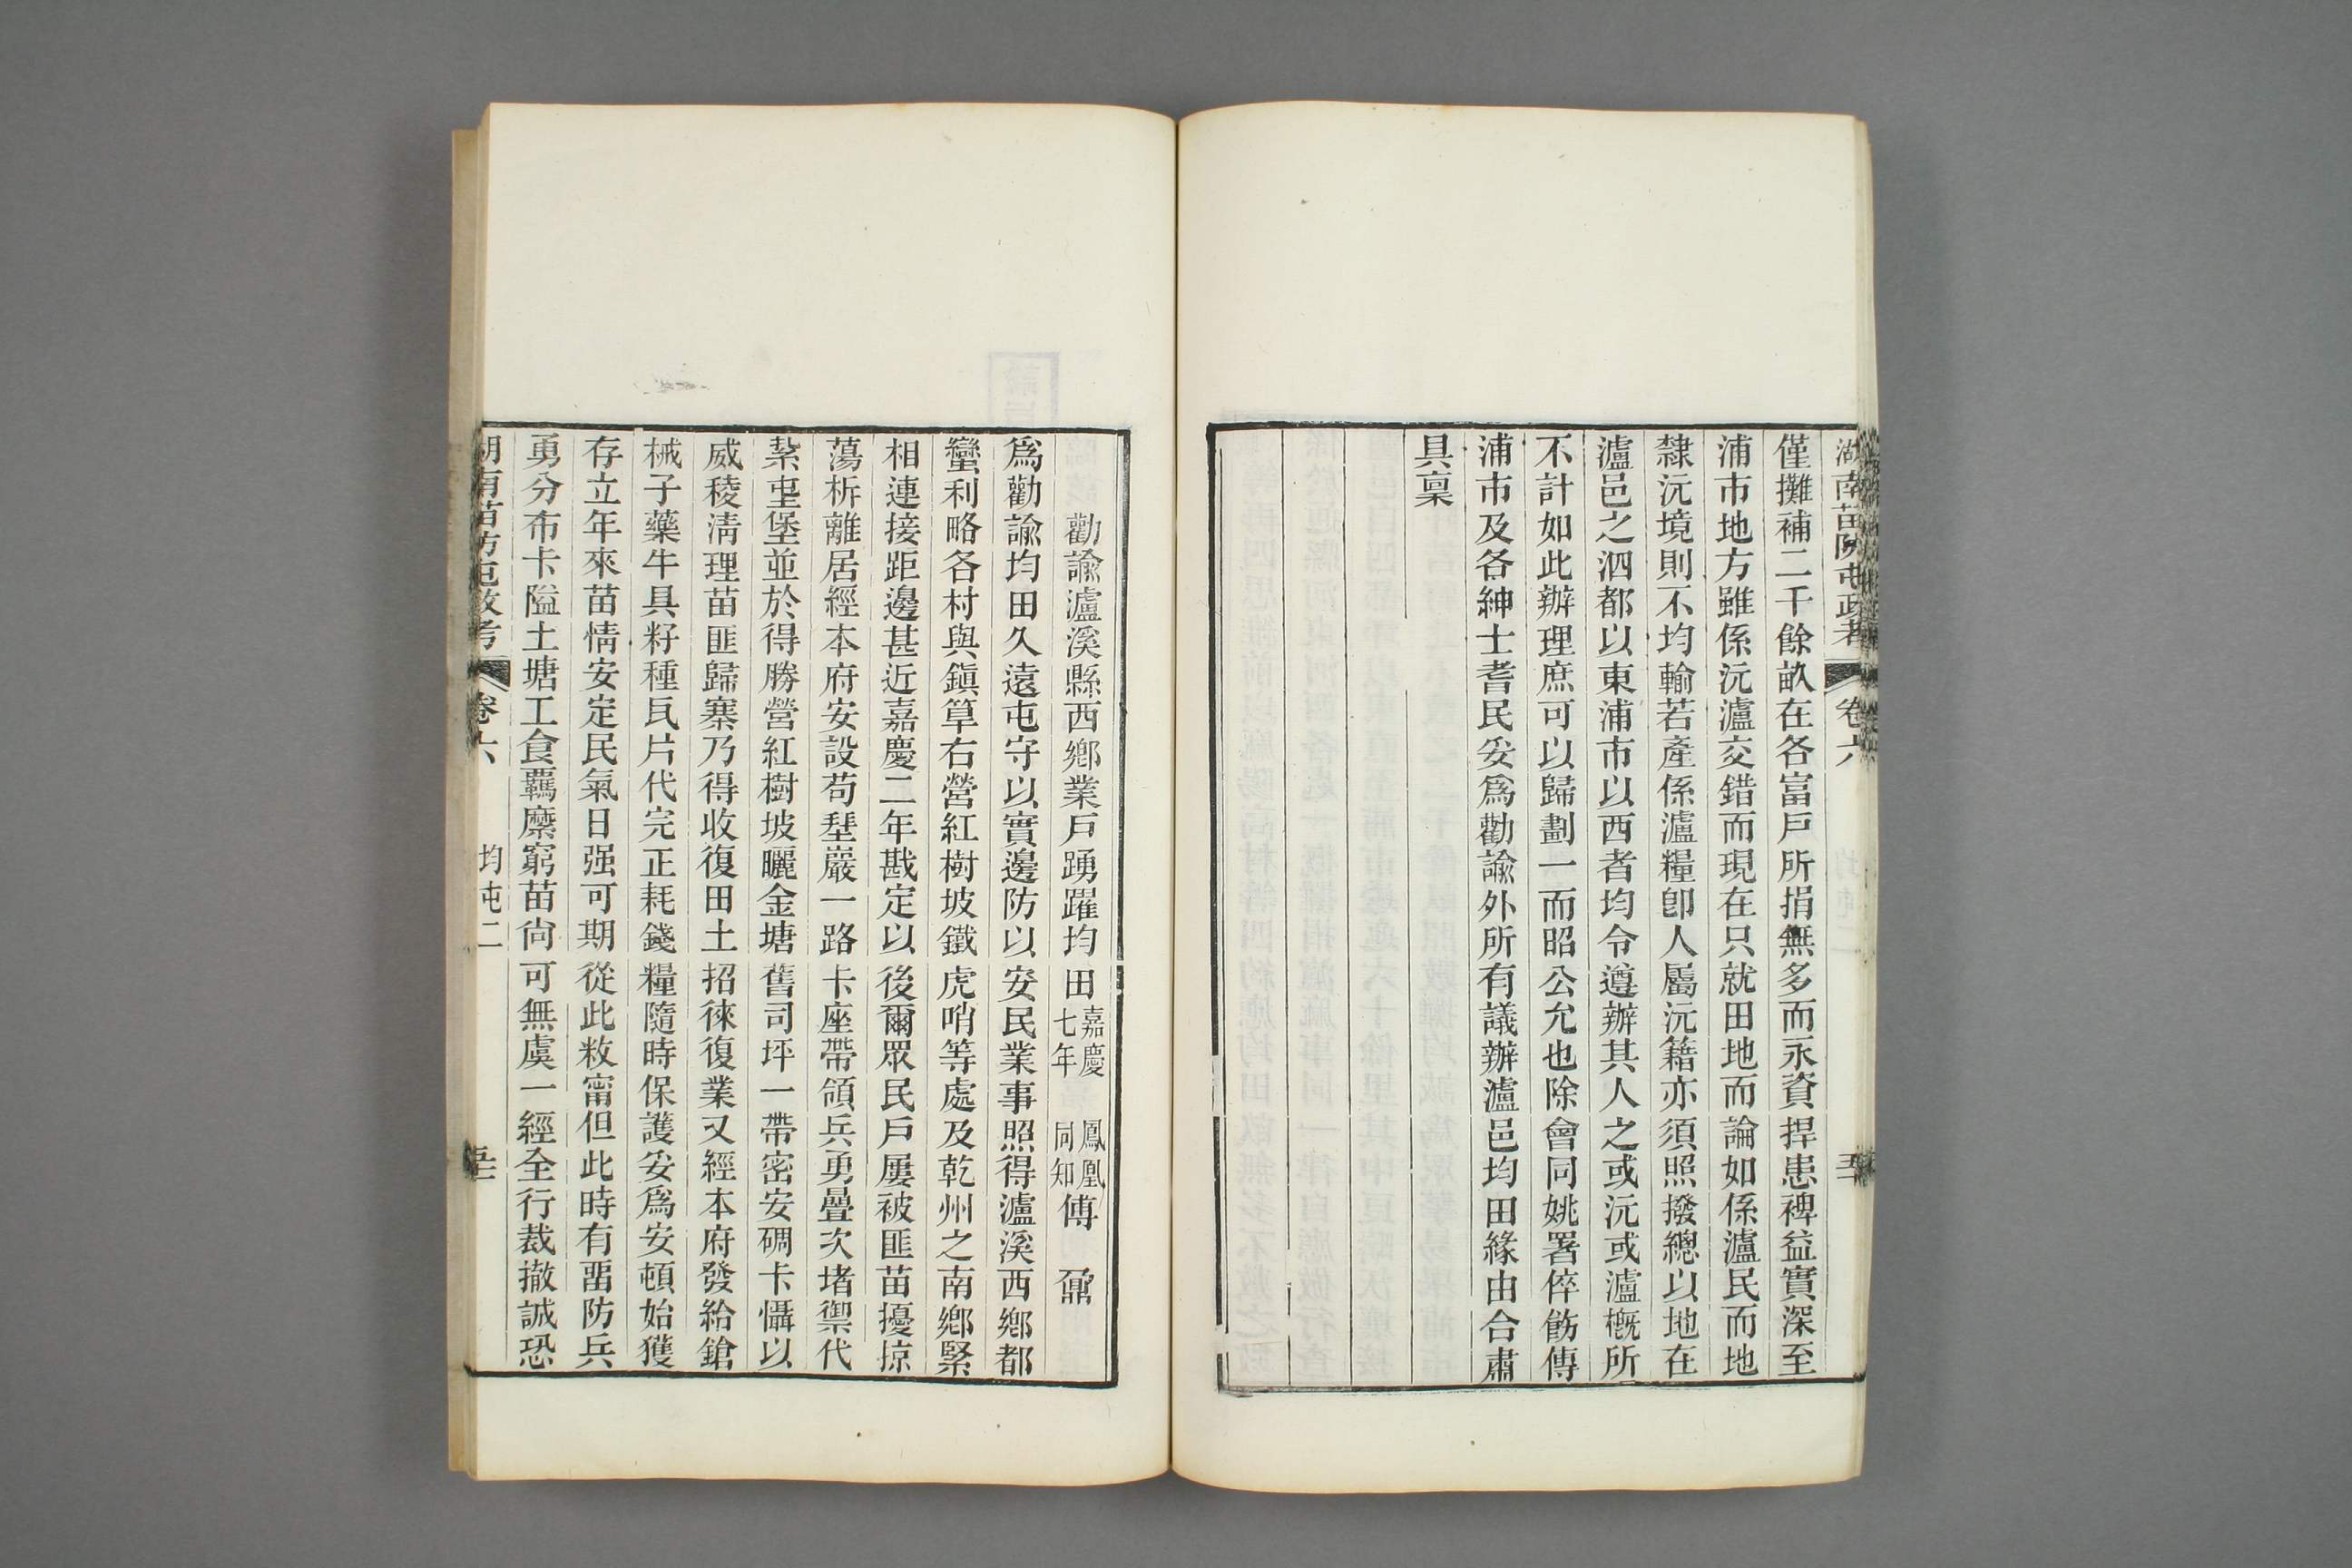 湖南苗防屯政考 卷六
僅攤補二千餘畝在各富戶所捐無多而永資捍患裨益實深至
浦市地方雖係沅瀘交錯而現在只就田地而論如係瀘民而地
隸沅境則不均輸若產係瀘糧卽人屬沅籍亦須照撥總以地在
瀘邑之泗都以東浦市以西者均令遵辦其人之或沅或瀘槪所
不計如此辦理庶可以歸劃一而昭公允也除會同姚署倅飭傳
浦市及各紳士耆民妥爲勸諭外所有議辦瀘邑均田緣由合肅
具稟
勸諭瀘溪縣西鄉業戶踴躍均田嘉慶七年 鳳凰同知傅鼐
爲勸諭均田久遠屯守以實邊防以安民業事照得瀘溪西鄉都
蠻利略各村與鎭筸右營紅樹坡鐵虎哨等處及乾州之南鄉緊
相連接距邊甚近嘉慶二年戡定以後爾眾民戶屢被匪苗擾掠
蕩析離居經本府安設苟琹巖一路卡座帶領兵勇疊次堵禦代
紮屯堡並於得勝營紅樹坡曬金塘舊司坪一帶密安碉卡懾以
威稜淸理苗匪歸寨乃得收復田土招徠復業又經本府發給鎗
械子藥牛具籽種瓦片代完正耗錢糧隨時保護妥爲安頓始獲
存立年來苗情安定民氣日强可期從此敉甯但此時有畱防兵
勇分布卡隘土塘工食羈縻窮苗尙可無虞一經全行裁撤誠恐
湖南苗防屯政考 卷六 均屯二